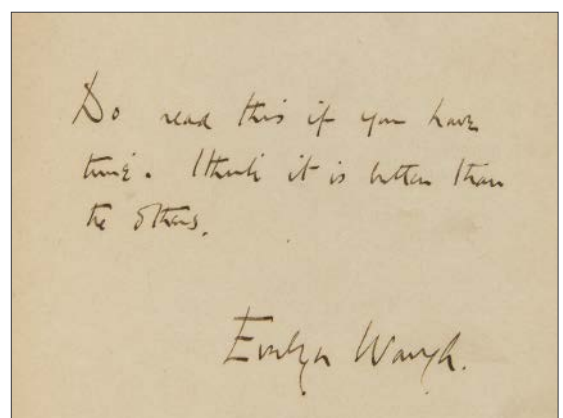 Do read this if you have
time. I think it is better than
the others.
Evelyn Waugh.